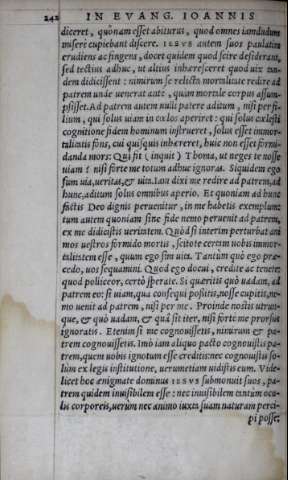 242 IN EVANG. IOANNIS
diceret, quònam esset abiturus, quod omnes iamdudum
misere cupiebant discere. IESVS autem suos paulatim
erudiens ac fingens, docet quidem quod scire desiderant,
sed tectius adhuc, ut altius inhæresceret quod uix tan-
dem didicissent: nimirum se relicta mortalitate redire ad
patrem unde uenerat ante, quàm mortale corpus assum-
psisset. Ad patrem autem nulli patere aditum, nisi per fi-
lium, qui solus uiam in cœlos aperiret: qui solus cœlesti
cognitione fidem hominum instrueret, solus esset immor-
talitatis fons, cui quisquis inhæreret, huic non esset formi-
danda mors: Qui fit (inquit) Thoma, ut neges te nosse
uiam? nisi forte me totum adhuc ignoras. Siquidem ego
sum uia, ueritas, & uita. Iam dixi me redire ad patrem, ad
hunc, aditum solus omnibus aperio. Et quoniam ad hunc
factis Deo dignis peruenitur, in me habetis exemplum:
tum autem quoniam sine fide nemo peruenit ad patrem,
ex me didicistis ueritatem. Quòd si interim perturbat ani
mos uestros formido mortis, scitote certam uobis immor-
talitatem esse, quam ego sim uita. Tantùm quò ego præ-
cedo, uos sequamini. Quod ego docui, credite ac tenete:
quod polliceor, certò sperate. Si quæritis quò uadam, ad
patrem eo: si uiam, qua consequi possitis, nosse cupitis, ne-
mo uenit ad patrem, nisi per me. Proinde nostis utrun-
que, & quò uadam, & quà sit iter, nisi forte me prorsus
ignoratis. Etenim si me cognouissetis, nimirum & pa-
trem cognouissetis. Imò iam aliquo pacto cognouistis pa-
trem, quem uobis ignotum esse creditis: nec cognouistis so-
lùm ex legis institutione, uerumetiam uidistis eum. Vide-
licet hoc ænigmate dominus IESVS submonuit suos, pa-
trem quidem inuisibilem esse: nec inuisibilem tantùm ocu-
lis corporeis, uerùm nec animo iuxta suam naturam perci-
pi posse: